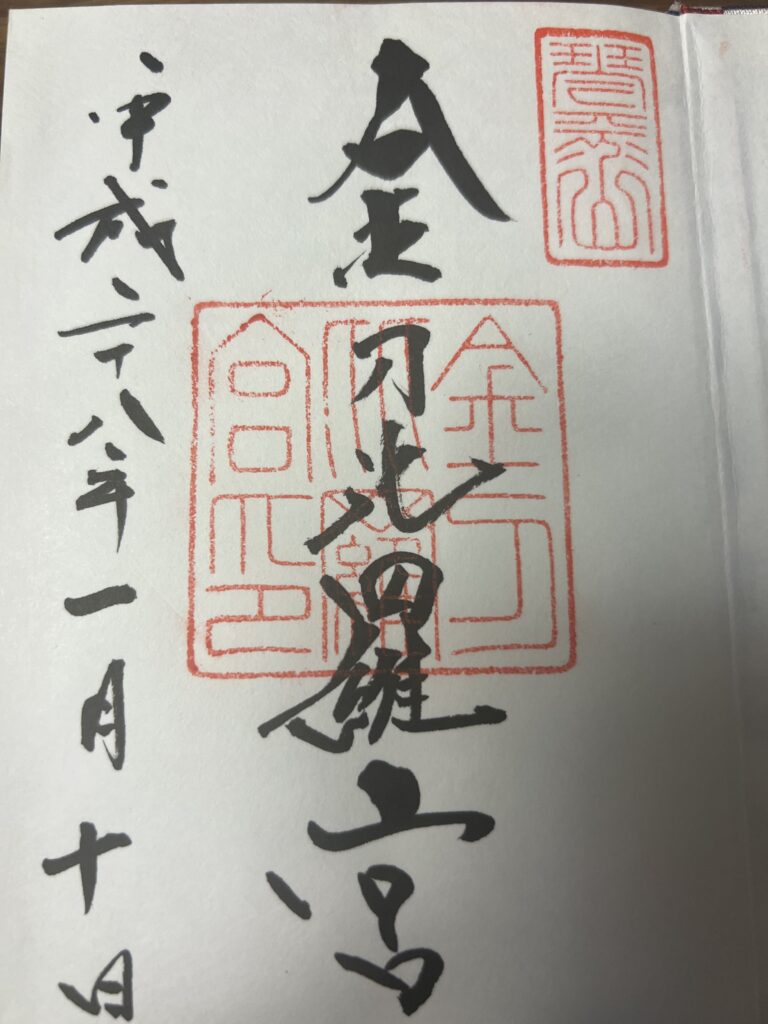 琴平山
金刀比羅宮
金刀
比羅
宮印
平成二十八年一月十日